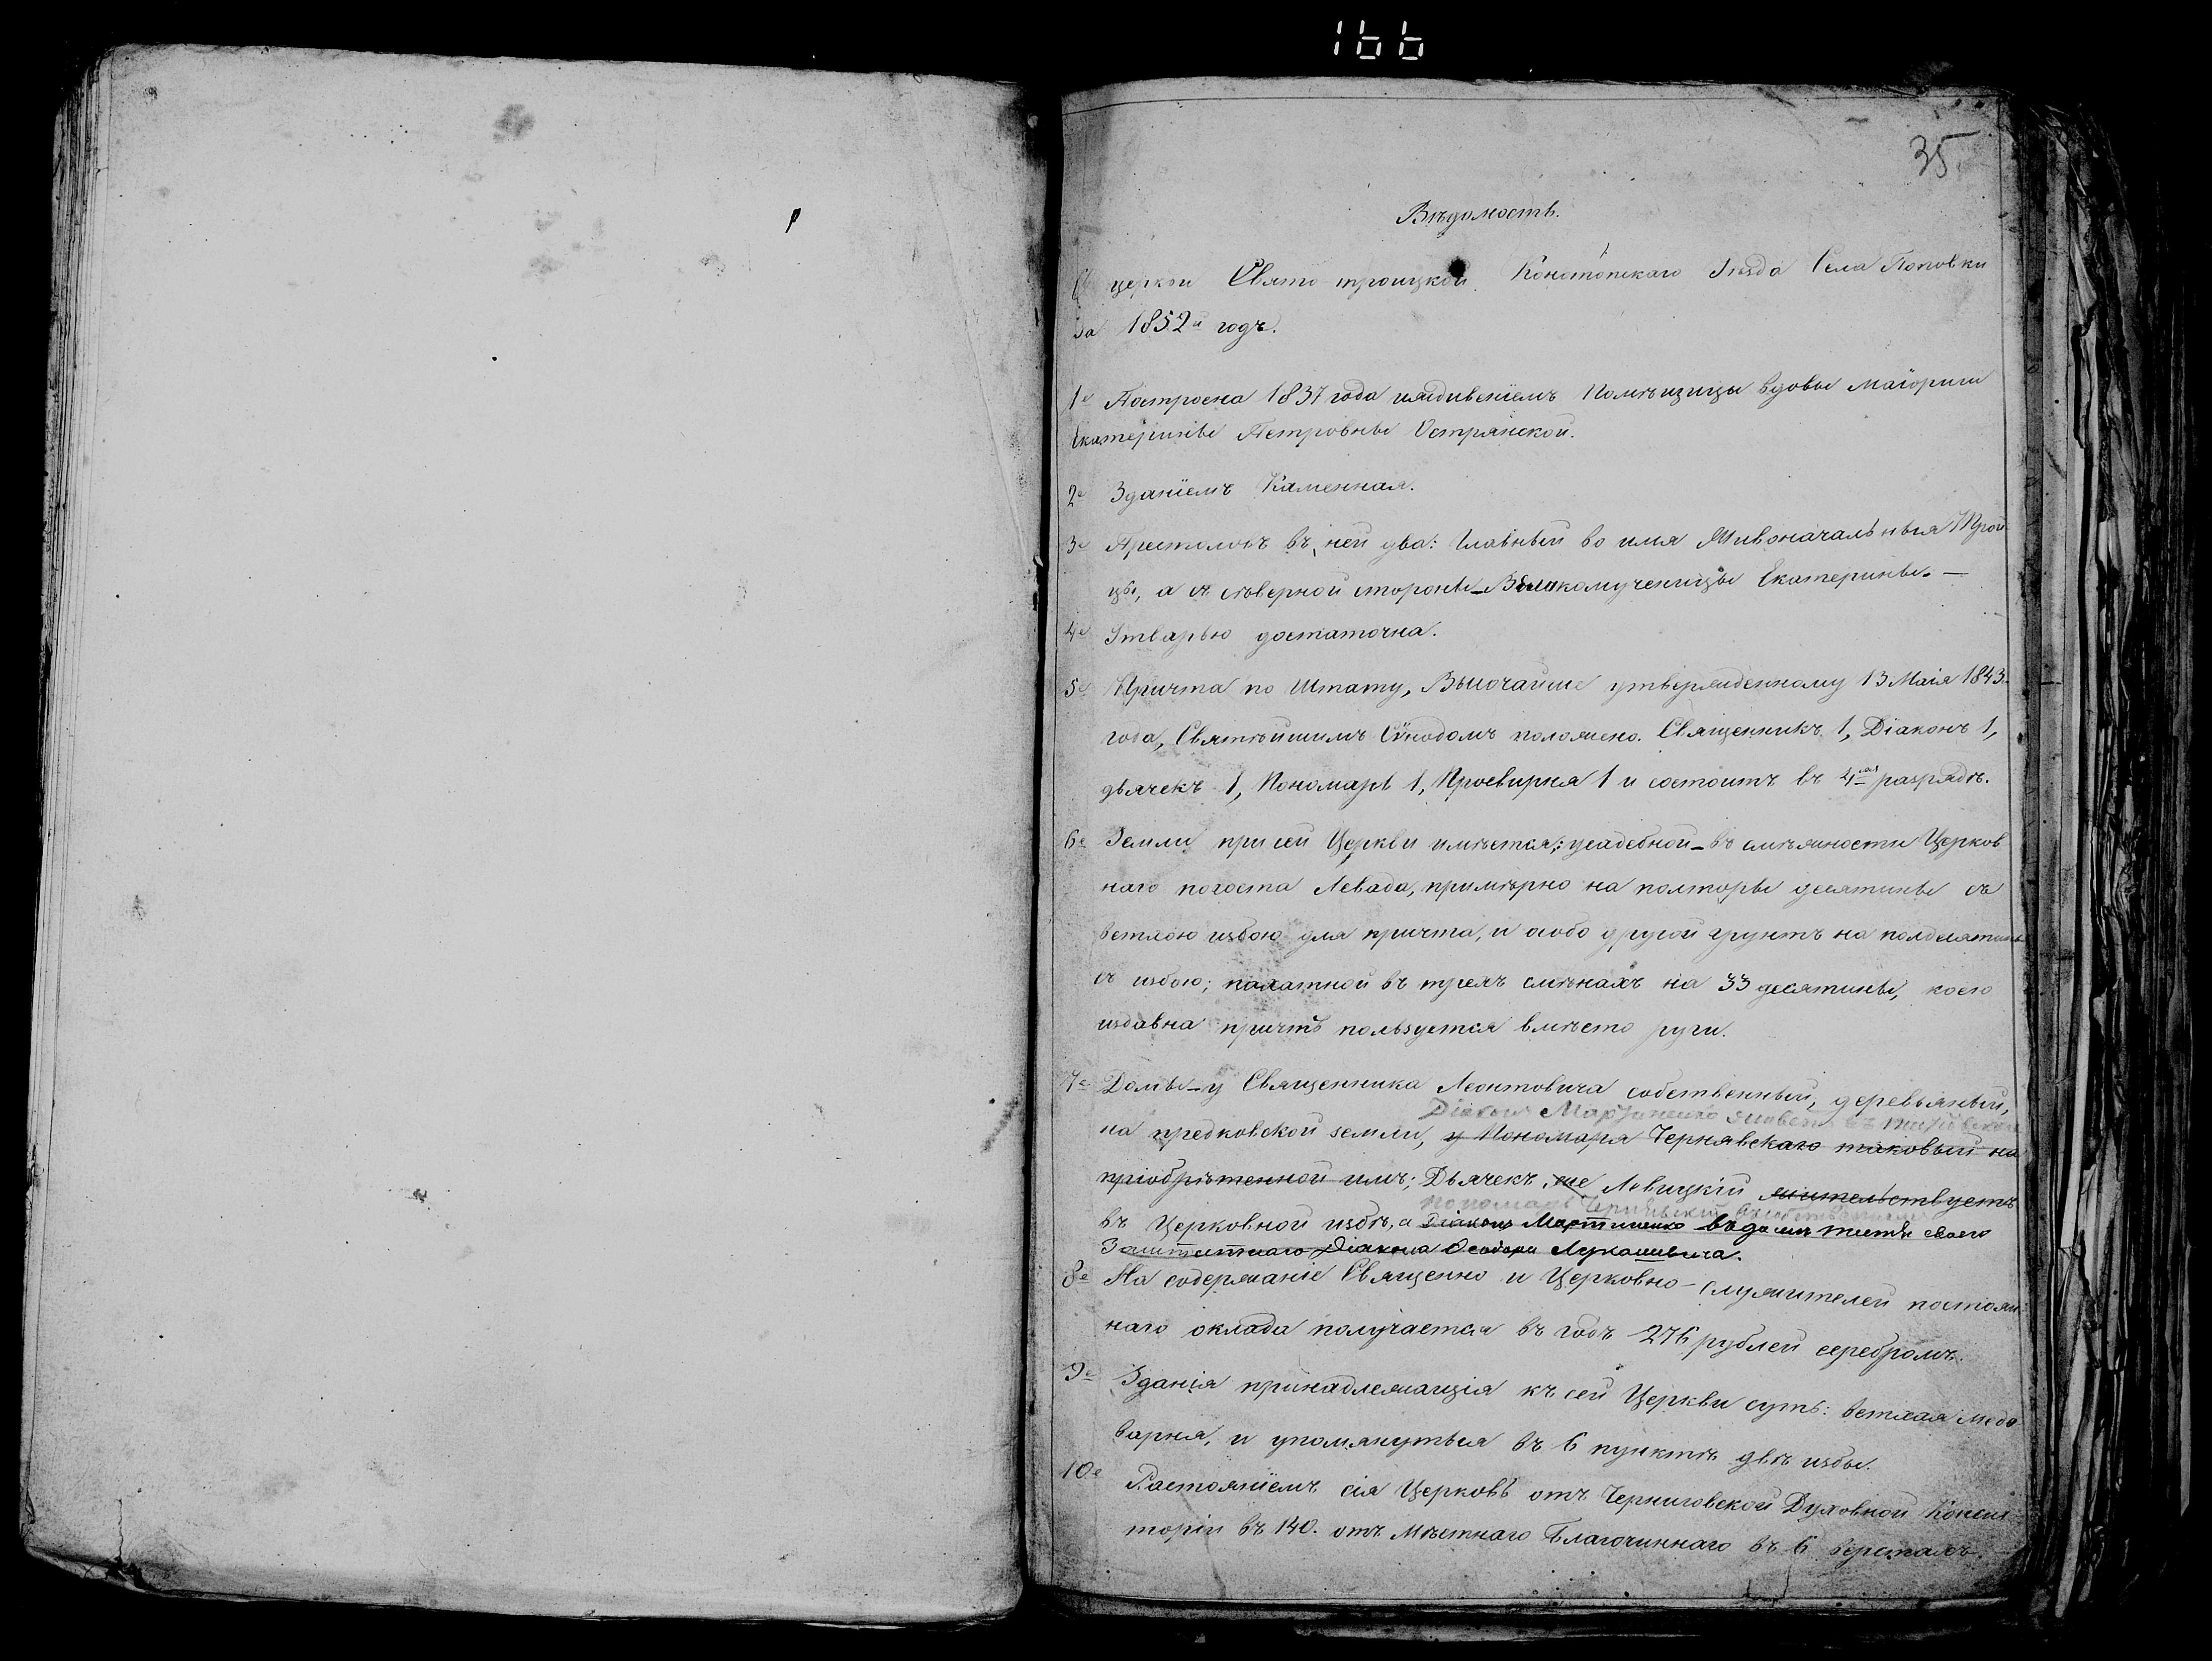 166
35
Вѣдомость.
О церкви Свято-троицкой Конотопскаго Уѣзда Села Поповки
за 1852й годъ.
1е Построена 1837 года иждивеніемъ Помѣщицы вдовы маіорши
Екатерины Петровны Острянской.
2е Зданіемъ Каменная.
3е Престоловъ въ ней два: Главный во имя Живоначальныя Трои
цы, а съ сѣверной стороны - Великомученицы Екатерины. —
4е Утварью достаточна.
5е Причта по Штату, Высочайше утвержденному 13 Маія 1843.
года, Святѣйшимъ Сѵнодомъ положено. Священникъ 1, Діаконъ 1,
дьячекъ 1, Пономарь 1, Просвирня 1 и состоитъ въ 4мъ разрядѣ.
6е Земли при сей Церкви имѣется; усадебной - въ смѣжности Церков
наго погоста Левада, примѣрно на полторы десятины съ
ветхою избою для причта, и особо другой грунтъ на полдесятины
съ избою; пахатной въ трехъ смѣнахъ на 33 десятины, коею
издавна причтъ пользуется вмѣсто руги.
7е Домы - у Священника Леонтовича собственный, деревяный,
Діаконъ Мартиненко живетъ въ
на предковской земли, у Пономаря Чернявскаго таковый на
пріобрѣтенной имъ; Дьячекъ же Левицкій жительствуетъ
пономарь Чернявскій
въ Церковной избѣ, а Діаконъ Мартиненко въ домѣ тестя своего
Заштатнаго Діакона Феодора Лукашевича.
8е На содержаніе Священно и Церковно-служителей постоян
наго оклада получается въ годъ 276 рублей серебромъ.
9е Зданія принадлежащія къ сей Церкви суть: ветхая медо
варня, и упомянутыя въ 6 пунктѣ двѣ избы.
10е Растояніемъ сія Церковь отъ Черниговской Духовной Консис
торіи въ 140. отъ Мѣстнаго Благочиннаго въ 6 верстахъ.